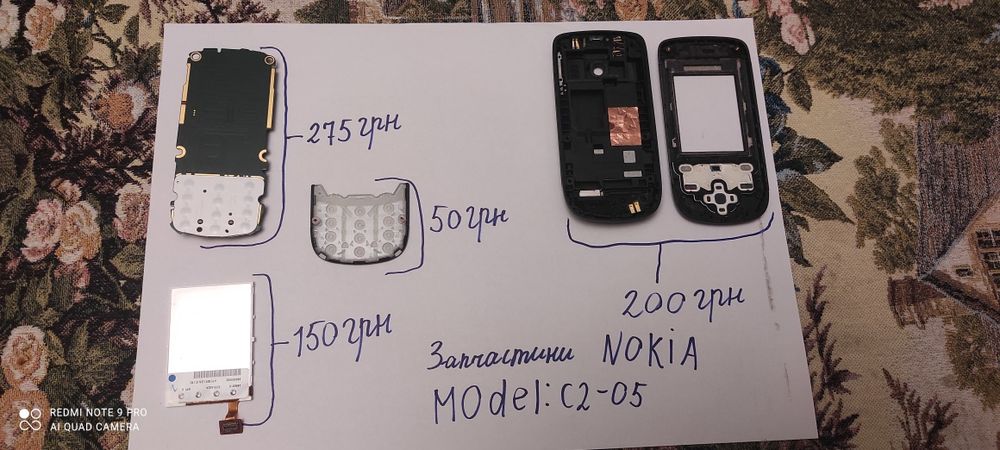 275грн
50грн
200грн
150грн
Запчастини NOKIA
MOdel: C2-05
REDMI NOTE 9 PRO
AI QUAD CAMERA